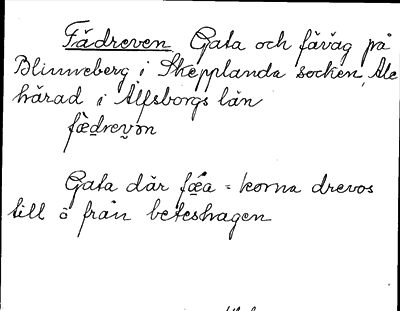 Fädreven Gata och fäväg på
Blinneberg i Skepplanda socken, Ale
härad i Älfsborgs län
fædrevən
Gata där fæa = korna drevos
till o från beteshagen